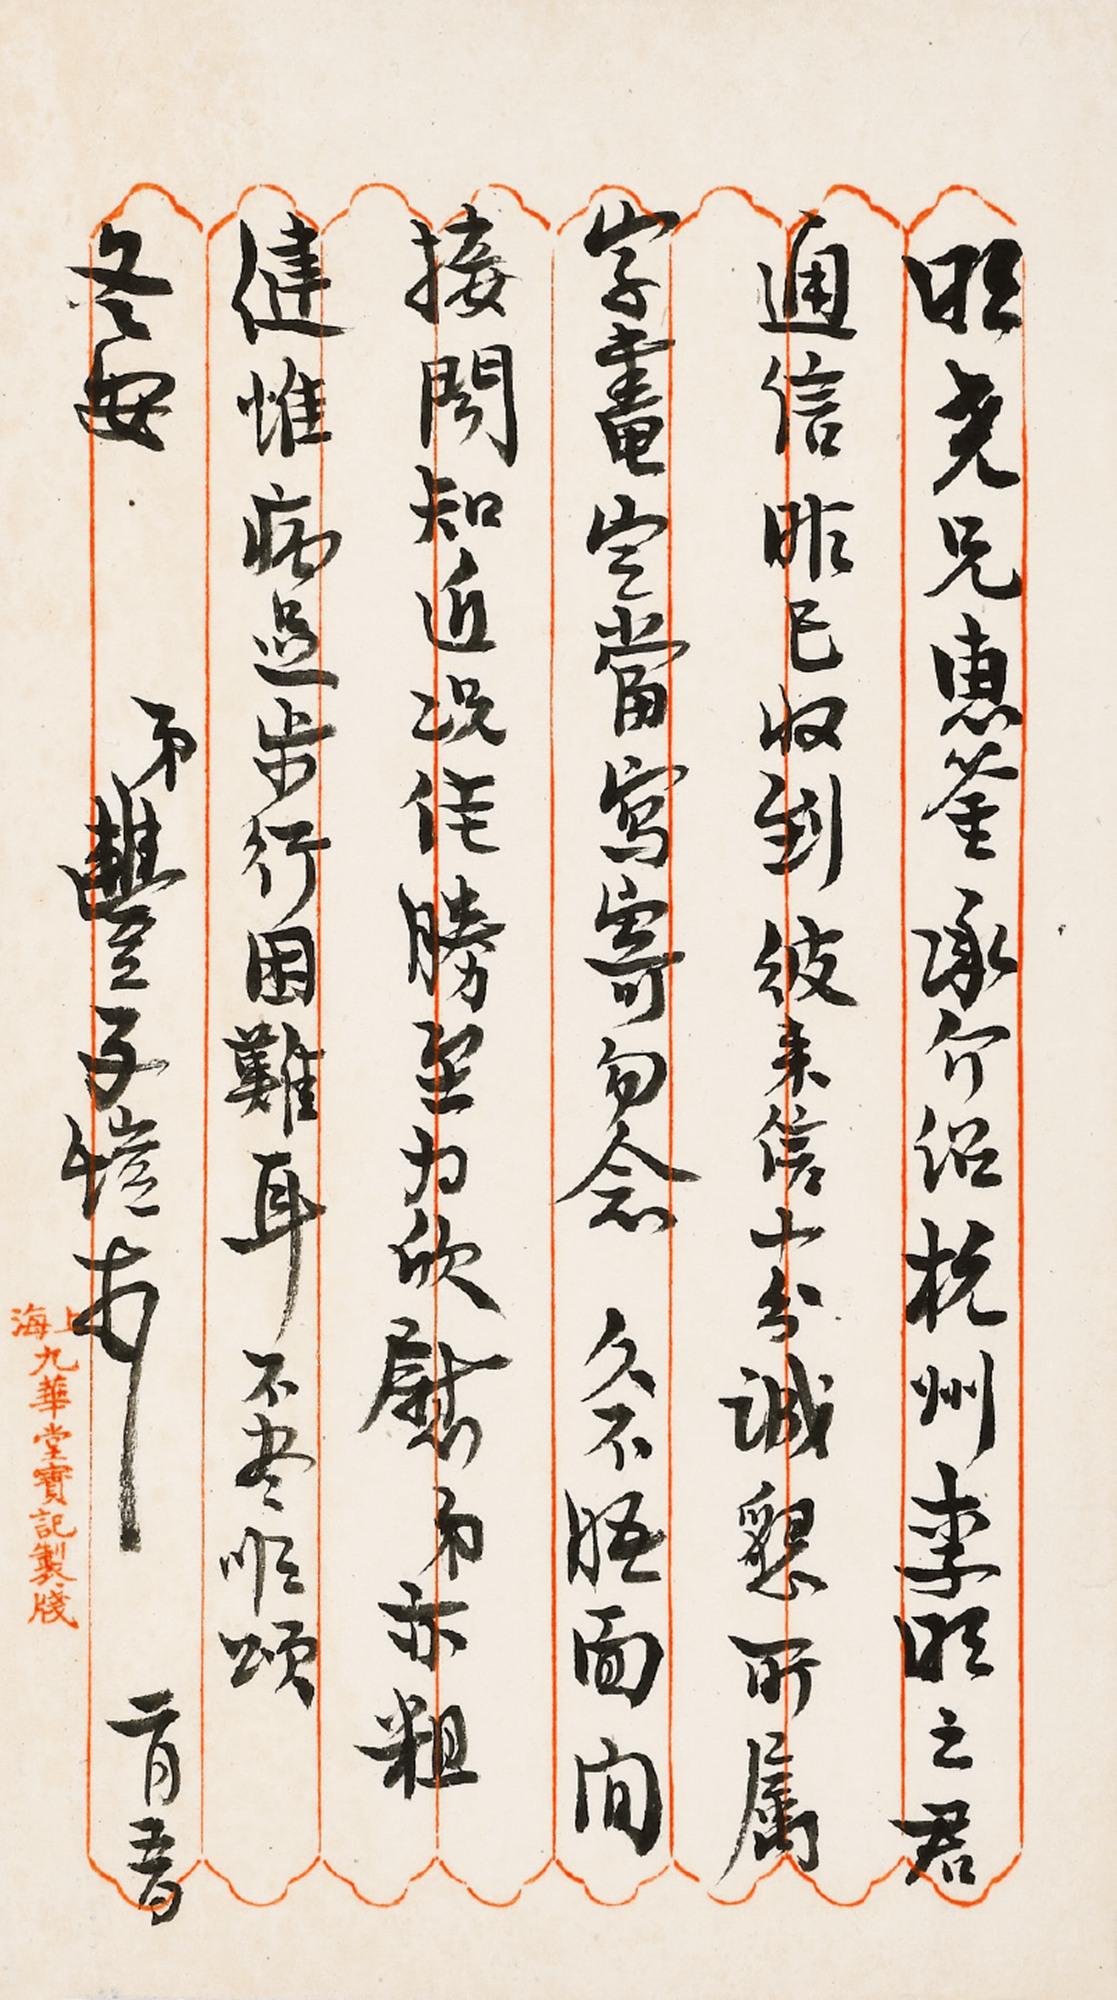 明尧兄惠鉴承介绍杭州李明之君
通信昨已收到彼来信十分誠懇所属
字畫定當寫寄勿念 久不晤面間
接聞知近况佳勝至为欣慰弟亦粗
健惟病足步行困難耳不尽順頌
冬安
弟豐子愷
二月五日
上海九華堂寶記製牋